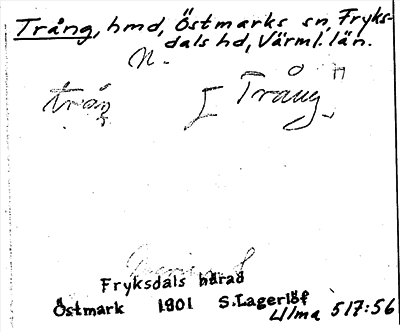 Trång, hmd, Östmarks sn, Fryks-
dals hd, Värml. län.
n.
trån [Trång
Fryksdals härad
Östmark 1901 S. Lagerlöf
Ulma 517:56